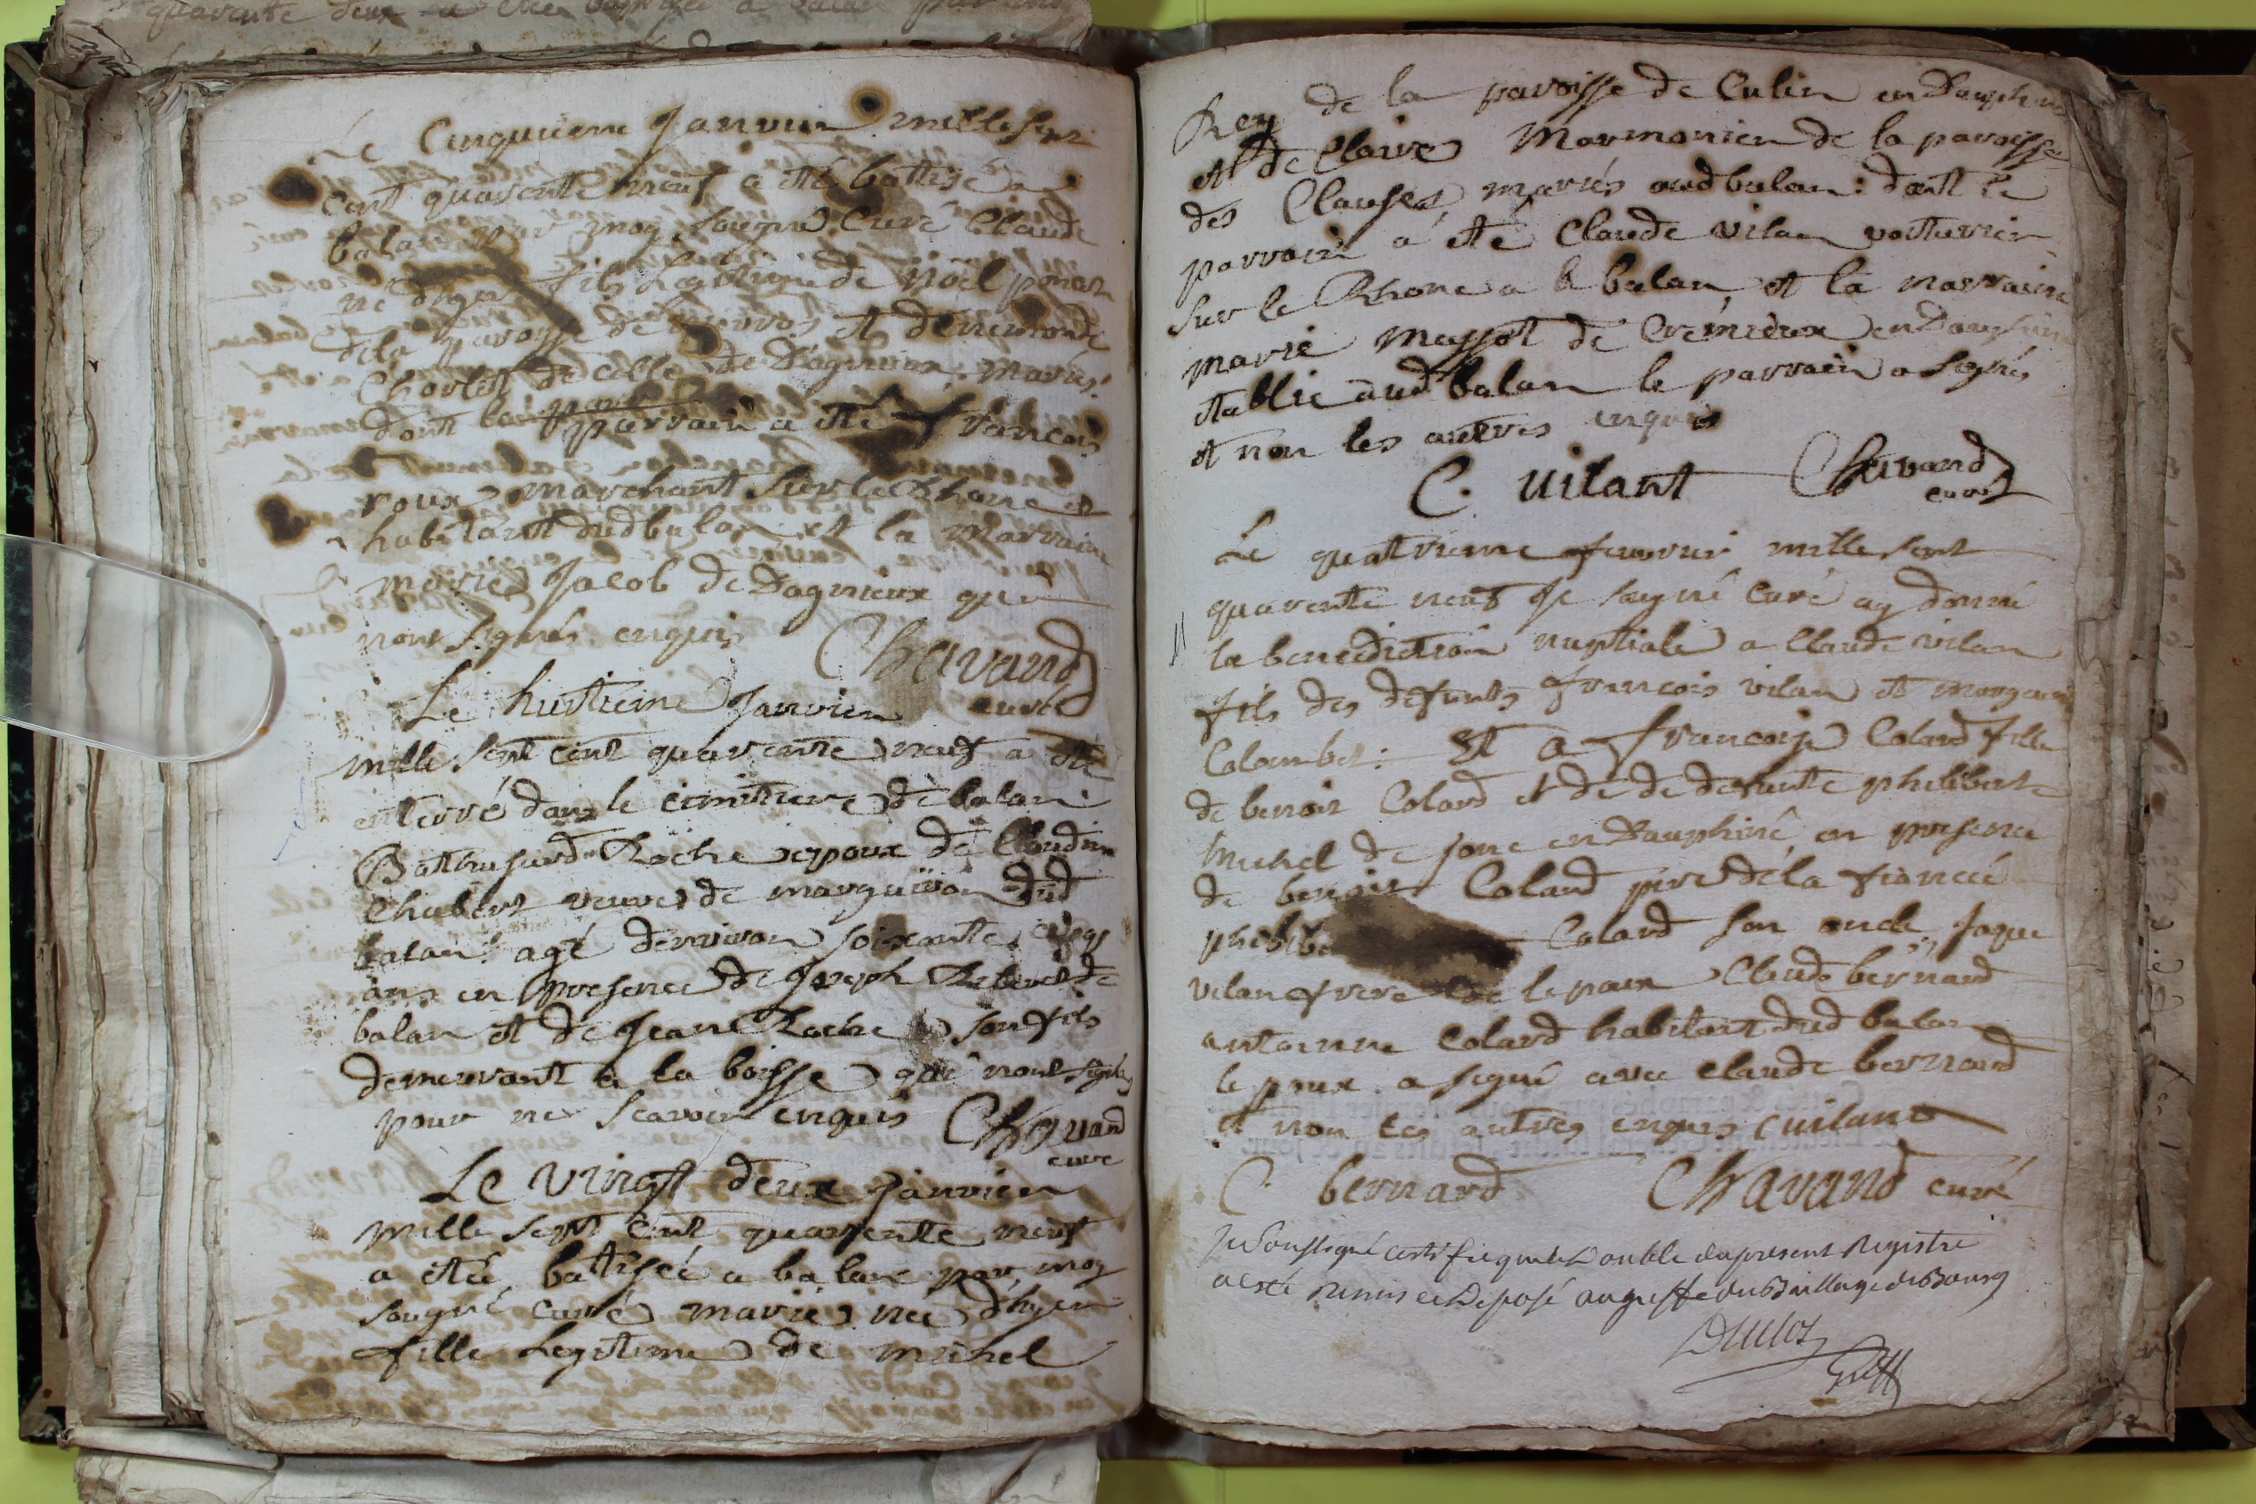 Le Cinquieme Janvier mille sept
cent quarente neuf a été batisé a
balan par moy sougné Curé Claude
né d'hyer fils Legitime de noel
de la paroisse de et de
de celle de Dagnieux mariés
dont parrain a été francois
roux marchant sur le Rhone et
habitant dud balan et la marraine
marie Jacob de Dagnieux qui
nont signés enquis Chavand
curé
Le huitieme Janvier
mille sept cent quarente neuf a été
enterré dans le cimitiere de balan
Roche epoux de Claudine
Chabert veuve de dud
balan agé denviron soixante cinq
ans en presence de Joseph de
balan et de Jean Roche son fils
demeurant a la boisse qui nont signés
pour ne scavoir enquis Chavand
curé
Le vingt deux Janvier
mille sept cent quarente neuf
a été batiséé a balan par moy
sougné curé marie née d'hyer
fille Legitime de michel
Rey de la paroisse de Culin en Dauphiné
et de Claire Marmonier de la paroisse
des mariés aud balan: dont le
parrain a été Claude vilan voiturier
sur le Rhone a balan, et la marraine
marie massot de Cremieux en Dauphiné
établie aud balan le parrain a signés
et non les autres enquis
C. uilant Chavand
curé
Le quatrieme feuvrier mille sent
quarente neuf Je sougné Curé ay donné
la benediction nuptiale a Claude vilan
fils des defunts francois vilan et
Colombet: Et a francoise Colard fille
de benoit Colard et de de defunte philiberte
michel de en Dauphiné, en presence
de benoit Colard pere de la fiancée
Colard son oncle, Jaque
vilan frere de lepoux Claude bernard
antoinne Colard habitant dud balan
lepoux a signé avec claude bernard
et non les autres enquis C uilant
C. bernard Chavand curé
Je Soussigné certifie que le Double du present Registre
a esté Remis et Deposé au greffe du Baillage de Bourg
Greff